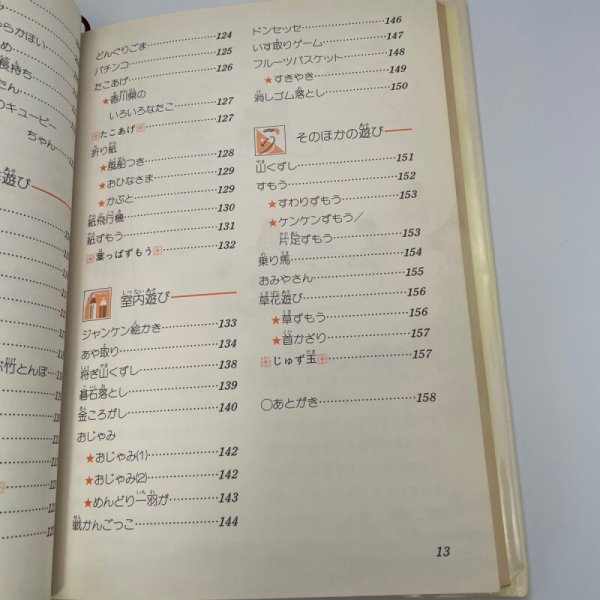 らかほい
め
長持ち
さん
のキューピー
ちゃん
遊び
竹とんぼ
どんぐりごま 124
パチンコ 125
たこあげ 126
★香川県の
いろいろなたこ 127
たこあげ 127
折り紙
★風船つき 128
★おひなさま 129
★かぶと 129
紙飛行機 130
紙ずもう 131
葉っぱずもう 132
室内遊び
ジャンケン絵かき 133
あや取り 134
将ぎ山くずし 138
碁石落とし 139
釜ころがし 140
おじゃみ
★おじゃみ(1) 142
★おじゃみ(2) 142
★めんどり一羽が 143
戦かんごっこ 144
ドンセッセ 146
いす取りゲーム 147
フルーツバスケット 148
★すきやき 149
消しゴム落とし 150
そのほかの遊び
山くずし 151
すもう 152
★すわりずもう 153
★ケンケンずもう/
片足ずもう 153
乗り馬 154
おみやさん 155
草花遊び 156
★草ずもう 156
★首かざり 157
じゅず玉 157
○あとがき 158
13